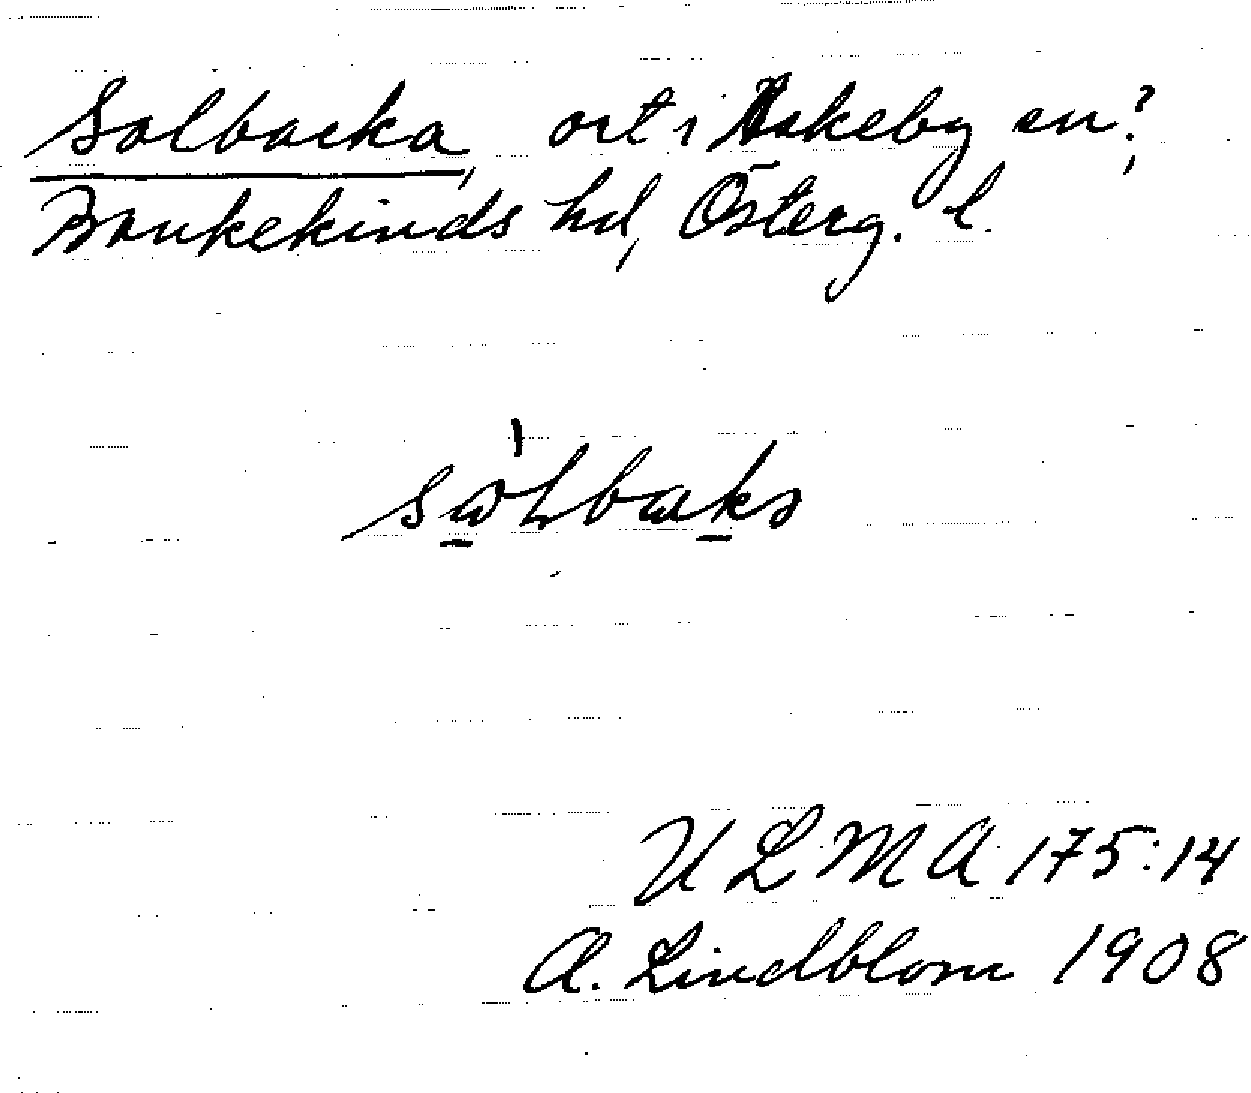 Solbacka, ort i Askeby sn?,
Bankekinds hd, Österg. l.
ULMA 175:14
A. Lindblom 1908